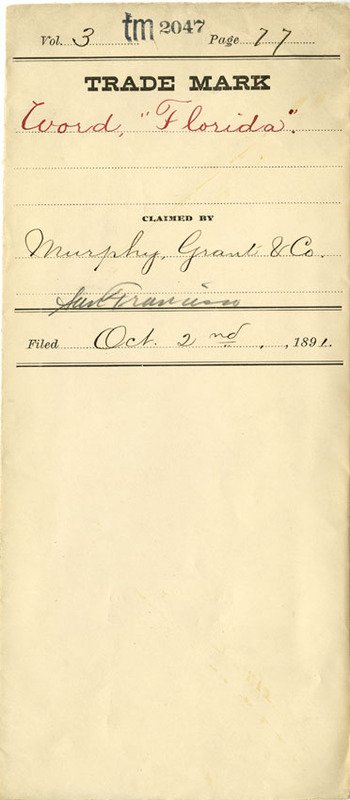 tm 2047
Vol. 3 Page 77
TRADE MARK
Word, "Florida".
CLAIMED BY
Murphy, Grant & Co.
San Francisco
Filed Oct. 2nd, 1891.